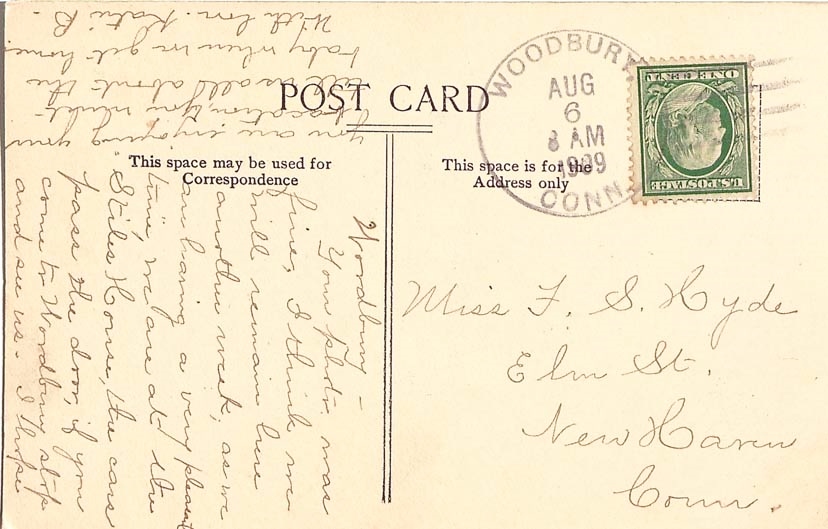 POST CARD
This space may be used for
Correspondence
This space is for the
Address only
WOODBURY
AUG
6
8 AM
1909
CONN.
ONE CENT
U.S. POSTAGE
Miss F. S. Hyde
Elm St.
New Haven
Conn.
Woodbury –
Your photo was
fine, I think we
will remain here
another week, as we
are having a very pleasant
time, we are at the
Stiles House, the cars
pass the door, if you
come to Woodbury stop
and see us – I hope
you are enjoying your
vacation, you must
tell me all about the
baby when we get home.
With love. Katie B –